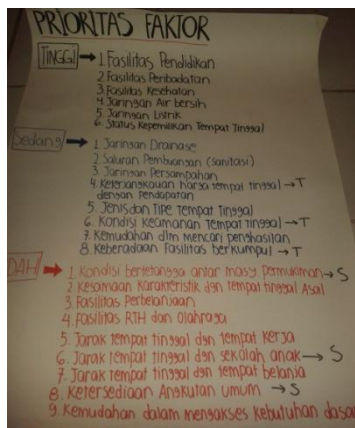 PRIORITAS FAKTOR
TINGGI → 1. Fasilitas Pendidikan
2. Fasilitas Peribadatan
3. Fasilitas Kesehatan
4. Jaringan Air bersih
5. Jaringan Listrik
6. Status Kepemilikan Tempat Tinggal
Sedang → 1. Jaringan Drainase
2. Saluran Pembuangan (sanitasi)
3. Jaringan Persampahan
4. Keterjangkauan harga tempat tinggal → T
dengan Pendapatan
5. Jenis dan TIPE Tempat Tinggal
6. Kondisi Keamanan Tempat tinggal → T
7. Kemudahan dlm mencari penghasilan
8. Keberadaan Fasilitas berkumpul → T
DAH → 1. Kondisi bertetangga antar masy. Permukiman → S
2. Kesamaan Karakteristik dgn tempat tinggal Asal
3. Fasilitas Perbelanjaan
4. Fasilitas RTH dan Olahraga
5. Jarak tempat tinggal dgn tempat Kerja
6. Jarak tempat tinggal dgn sekolah anak → S
7. Jarak tempat tinggal dgn tempat belanja
8. Ketersediaan Angkutan umum → S
9. Kemudahan dalam mengakses Kebutuhan dasar